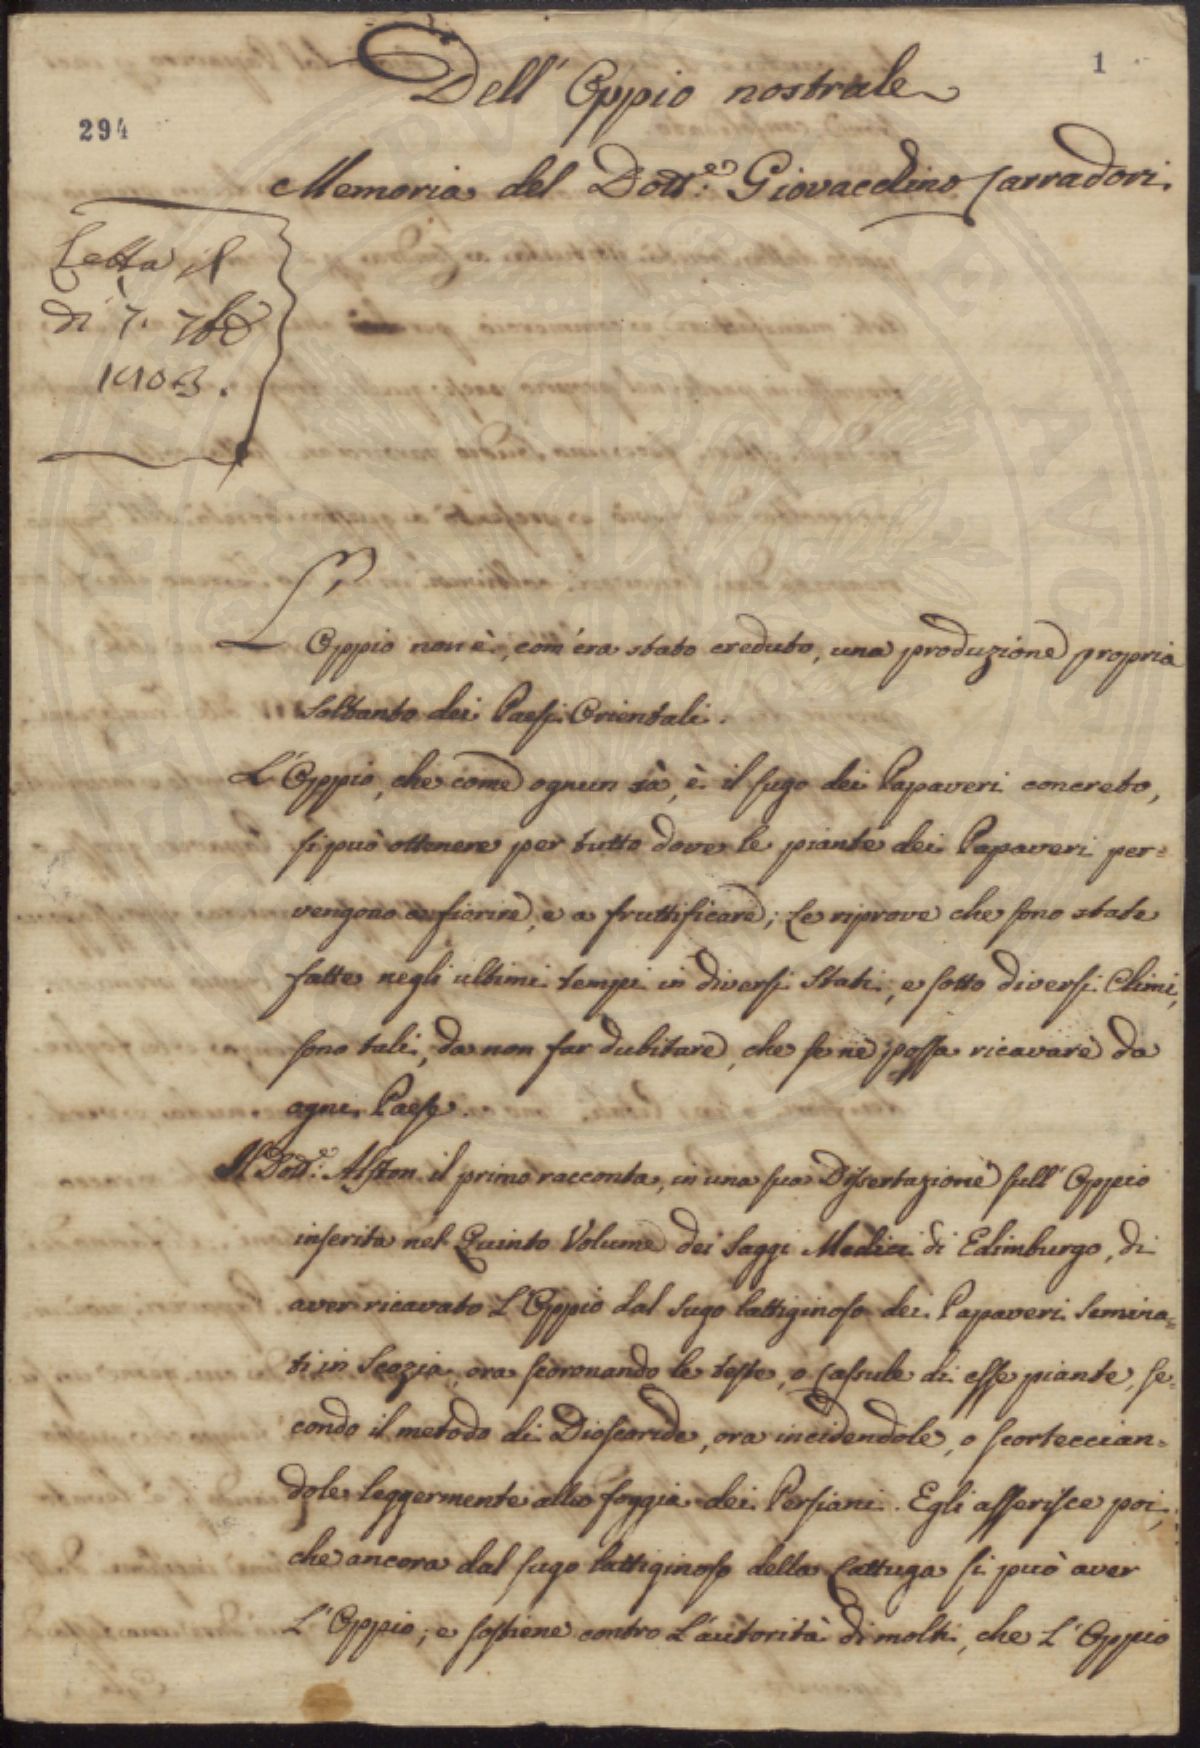 1
294
Dell' Oppio nostrale
Memoria del Dott.e Giovacchino Carradori.
Letta il
di 7. 7bre
1803.
L'
Oppio non è, com'era stato creduto, una produzione propria
soltanto dei Paesi Orientali.
L'Oppio, che come ognun sà, è il sugo dei Papaveri concreto,
si può ottenere per tutto dove le piante dei Papaveri per=
vengono a fiorire, e a fruttificare; Le riprove che sono state
fatte negli ultimi tempi in diversi Stati, e sotto diversi Climi,
sono tali, da non far dubitare, che se ne possa ricavare da
ogni Paese.
Il Dott.e Alston il primo racconta, in una sua Dissertazione sull' Oppio
inserita nel Quinto Volume dei Saggi Medici di Edimburgo, di
aver ricavato L'Oppio dal sugo lattiginoso dei Papaveri semina=
ti in Scozia, ora scoronando le teste, o Cassule di esse piante, se=
condo il metodo di Dioscoride, ora incidendole, o scorteccian=
dole leggermente alla foggia dei Persiani. Egli asserisce poi,
che ancora dal sugo lattiginoso della Lattuga si può aver
L'Oppio; e sostiene contro L'autorità di molti, che L'Oppio